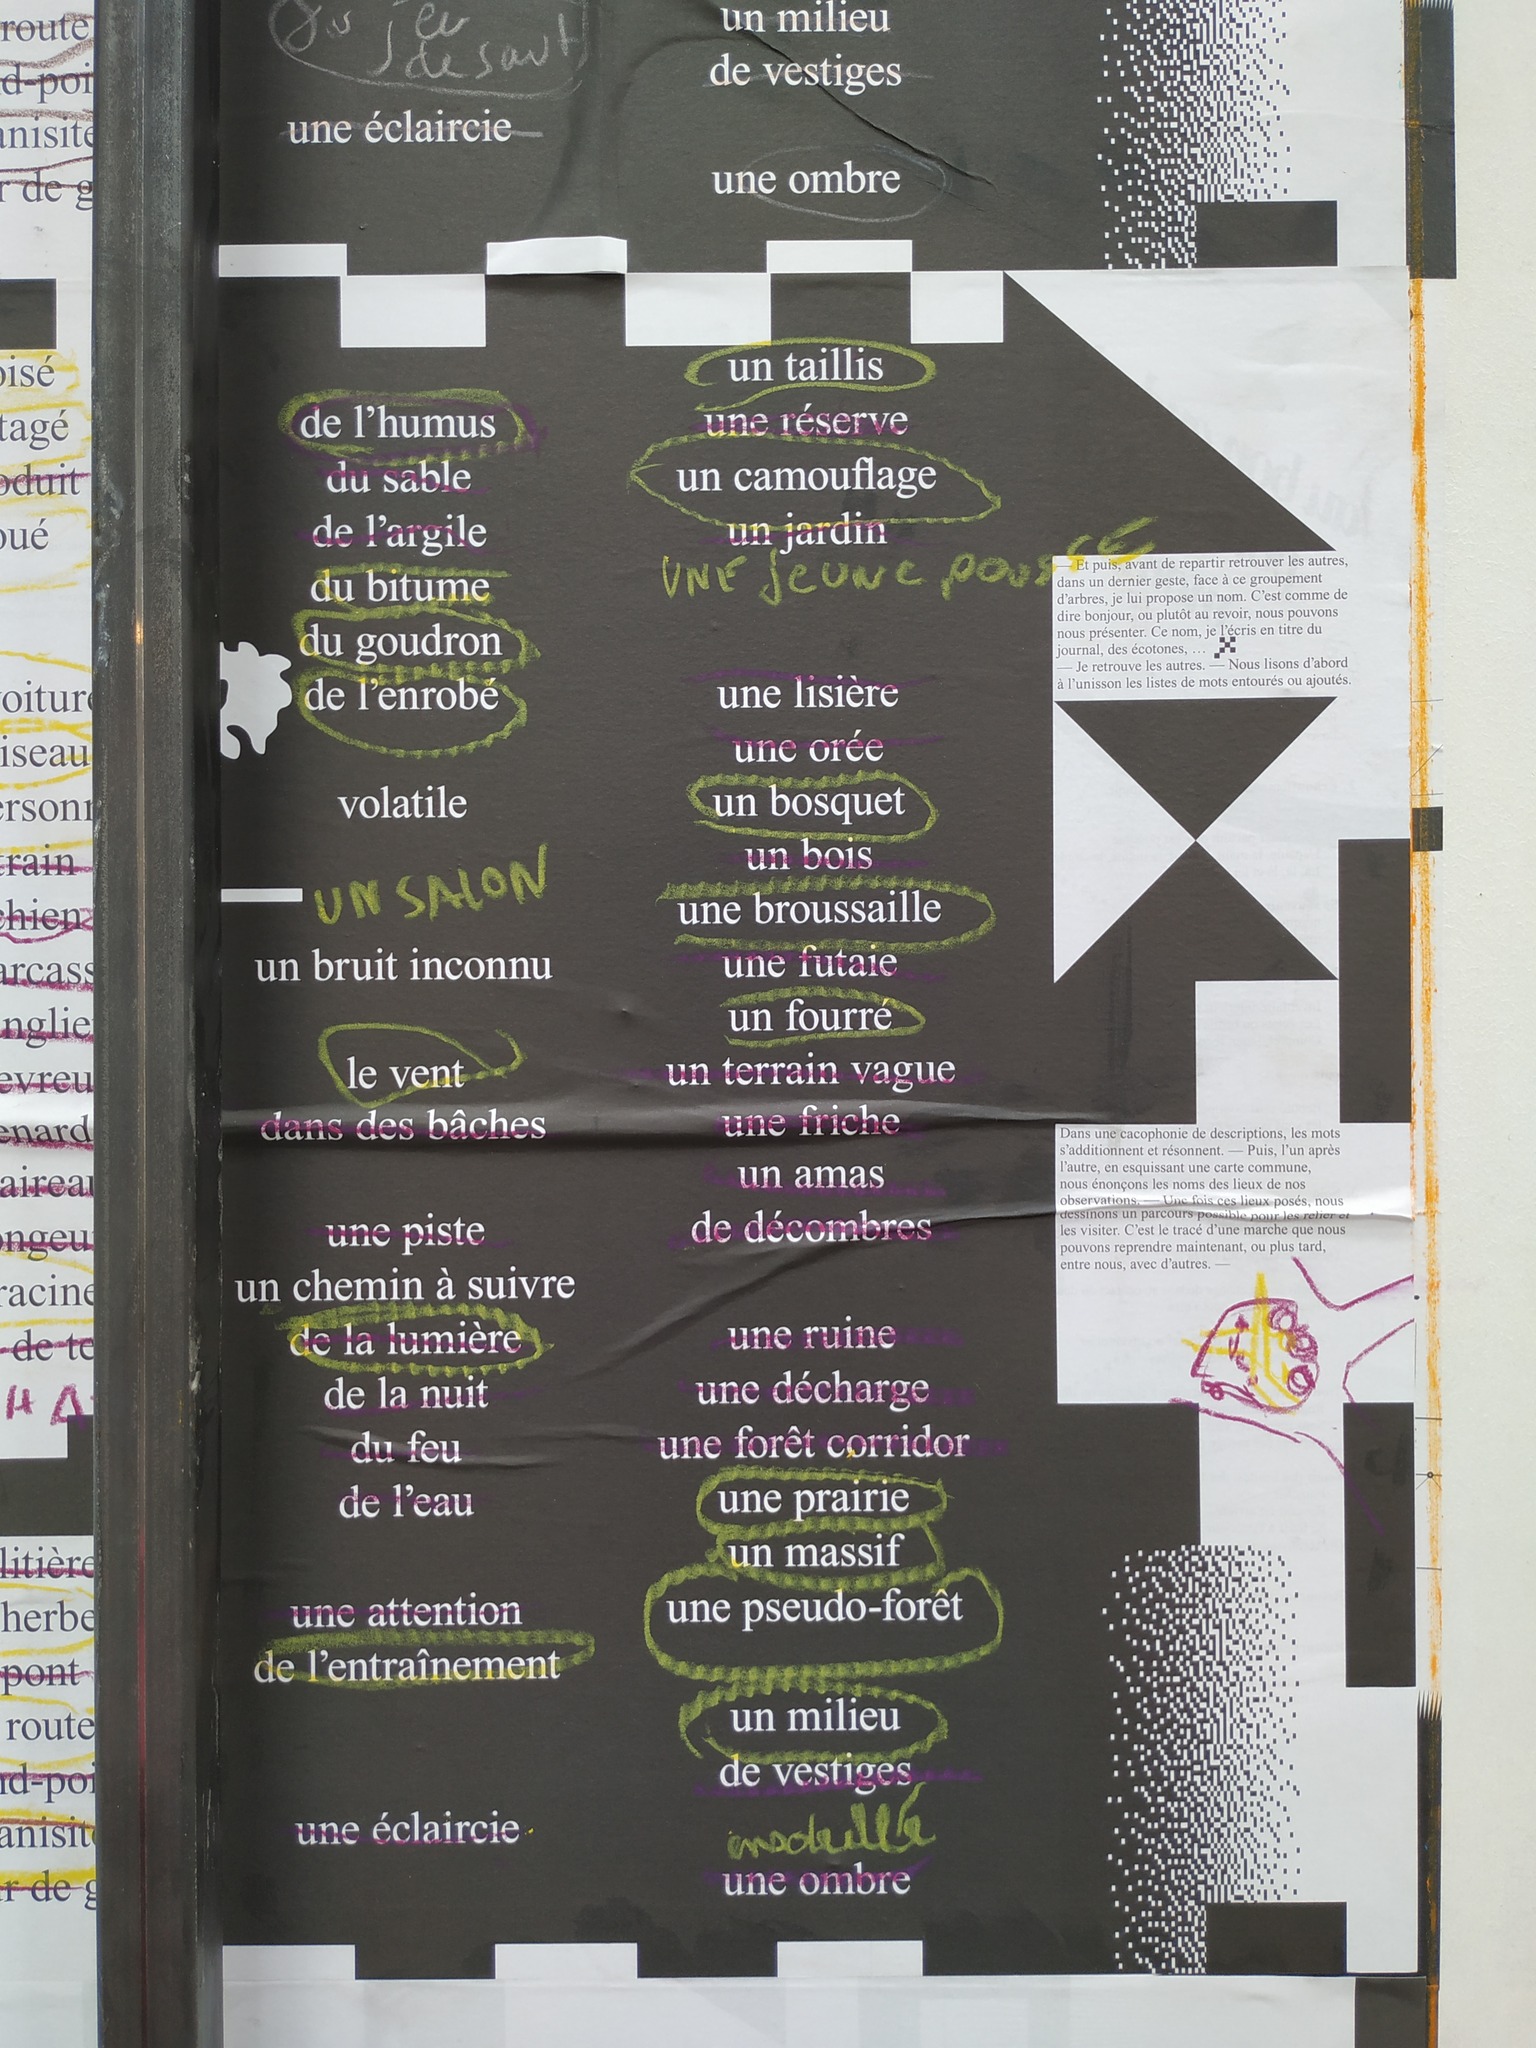 route
un milieu
de vestiges
une éclaircie
une ombre
de l'humus
du sable
de l'argile
du bitume
du goudron
de l'enrobé
volatile
UN SALON
un bruit inconnu
le vent
dans des bâches
une piste
un chemin à suivre
de la lumière
de la nuit
du feu
de l'eau
une attention
de l'entraînement
une éclaircie
un taillis
une réserve
un camouflage
un jardin
UNE jeune pousse
une lisière
une orée
un bosquet
un bois
une broussaille
une futaie
un fourré
un terrain vague
une friche
un amas
de décombres
une ruine
une décharge
une forêt corridor
une prairie
un massif
une pseudo-forêt
un milieu
de vestiges
une ombre
— Et puis, avant de repartir retrouver les autres,
dans un dernier geste, face à ce groupement
d'arbres, je lui propose un nom. C'est comme de
dire bonjour, ou plutôt au revoir, nous pouvons
nous présenter. Ce nom, je l'écris en titre du
journal, des écotones, …
— Je retrouve les autres. — Nous lisons d'abord
à l'unisson les listes de mots entourés ou ajoutés.
Dans une cacophonie de descriptions, les mots
s'additionnent et résonnent. — Puis, l'un après
l'autre, en esquissant une carte commune,
nous énonçons les noms des lieux de nos
observations. — Une fois ces lieux posés, nous
dessinons un parcours possible pour les relier et
les visiter. C'est le tracé d'une marche que nous
pouvons reprendre maintenant, ou plus tard,
entre nous, avec d'autres. —
herbe
pont
route